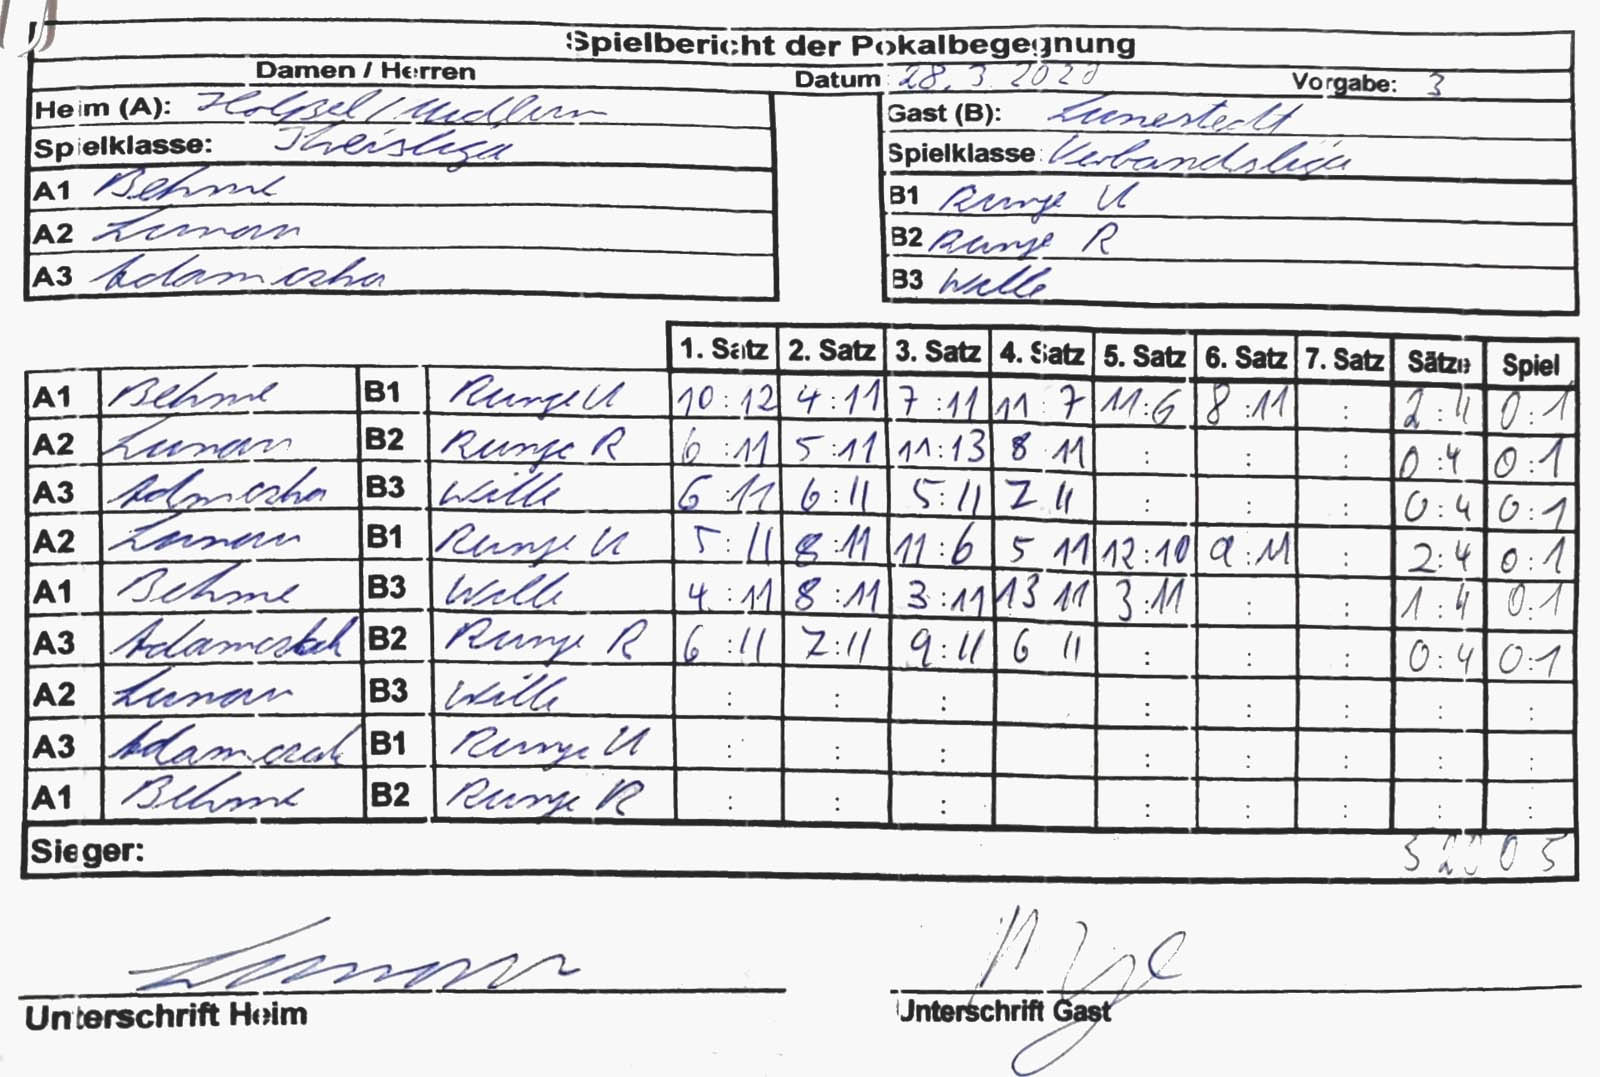 Spielbericht der Pokalbegegnung
Damen / Herren Datum: 28.3.2020 Vorgabe: 3
Heim (A): Gast (B): Lunestedt
Spielklasse: Kreisliga Spielklasse: Verbandsliga
A1 Behme B1 Runge U
A2 Lunau B2 Runge R
A3 Adamczak B3 Wille
1. Satz 2. Satz 3. Satz 4. Satz 5. Satz 6. Satz 7. Satz Sätze Spiel
A1 Behme B1 Runge U 10:12 4:11 7:11 11:7 11:6 8:11 : 2:4 0:1
A2 Lunau B2 Runge R 6:11 5:11 11:13 8 11 : : : 0:4 0:1
A3 Adamczak B3 Wille 6:11 6:11 5:11 7 11 : : : 0:4 0:1
A2 Lunau B1 Runge U 5:11 8:11 11:6 5 11 12:10 9:11 : 2:4 0:1
A1 Behme B3 Wille 4:11 8:11 3:11 13 11 3:11 : : 1:4 0:1
A3 Adamczak B2 Runge R 6:11 7:11 9:11 6 11 : : : 0:4 0:1
A2 Lunau B3 Wille : : : : : : : :
A3 Adamczak B1 Runge U : : : : : : : :
A1 Behme B2 Runge R : : : : : : : :
Sieger: 0 5
Lunau
Unterschrift Heim Unterschrift Gast